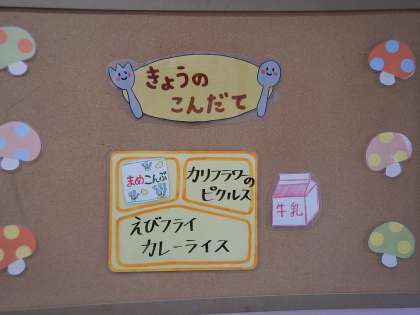 きょうの
こんだて
まめこんぶ
カリフラワーの
ピクルス
えびフライ
カレーライス
牛乳